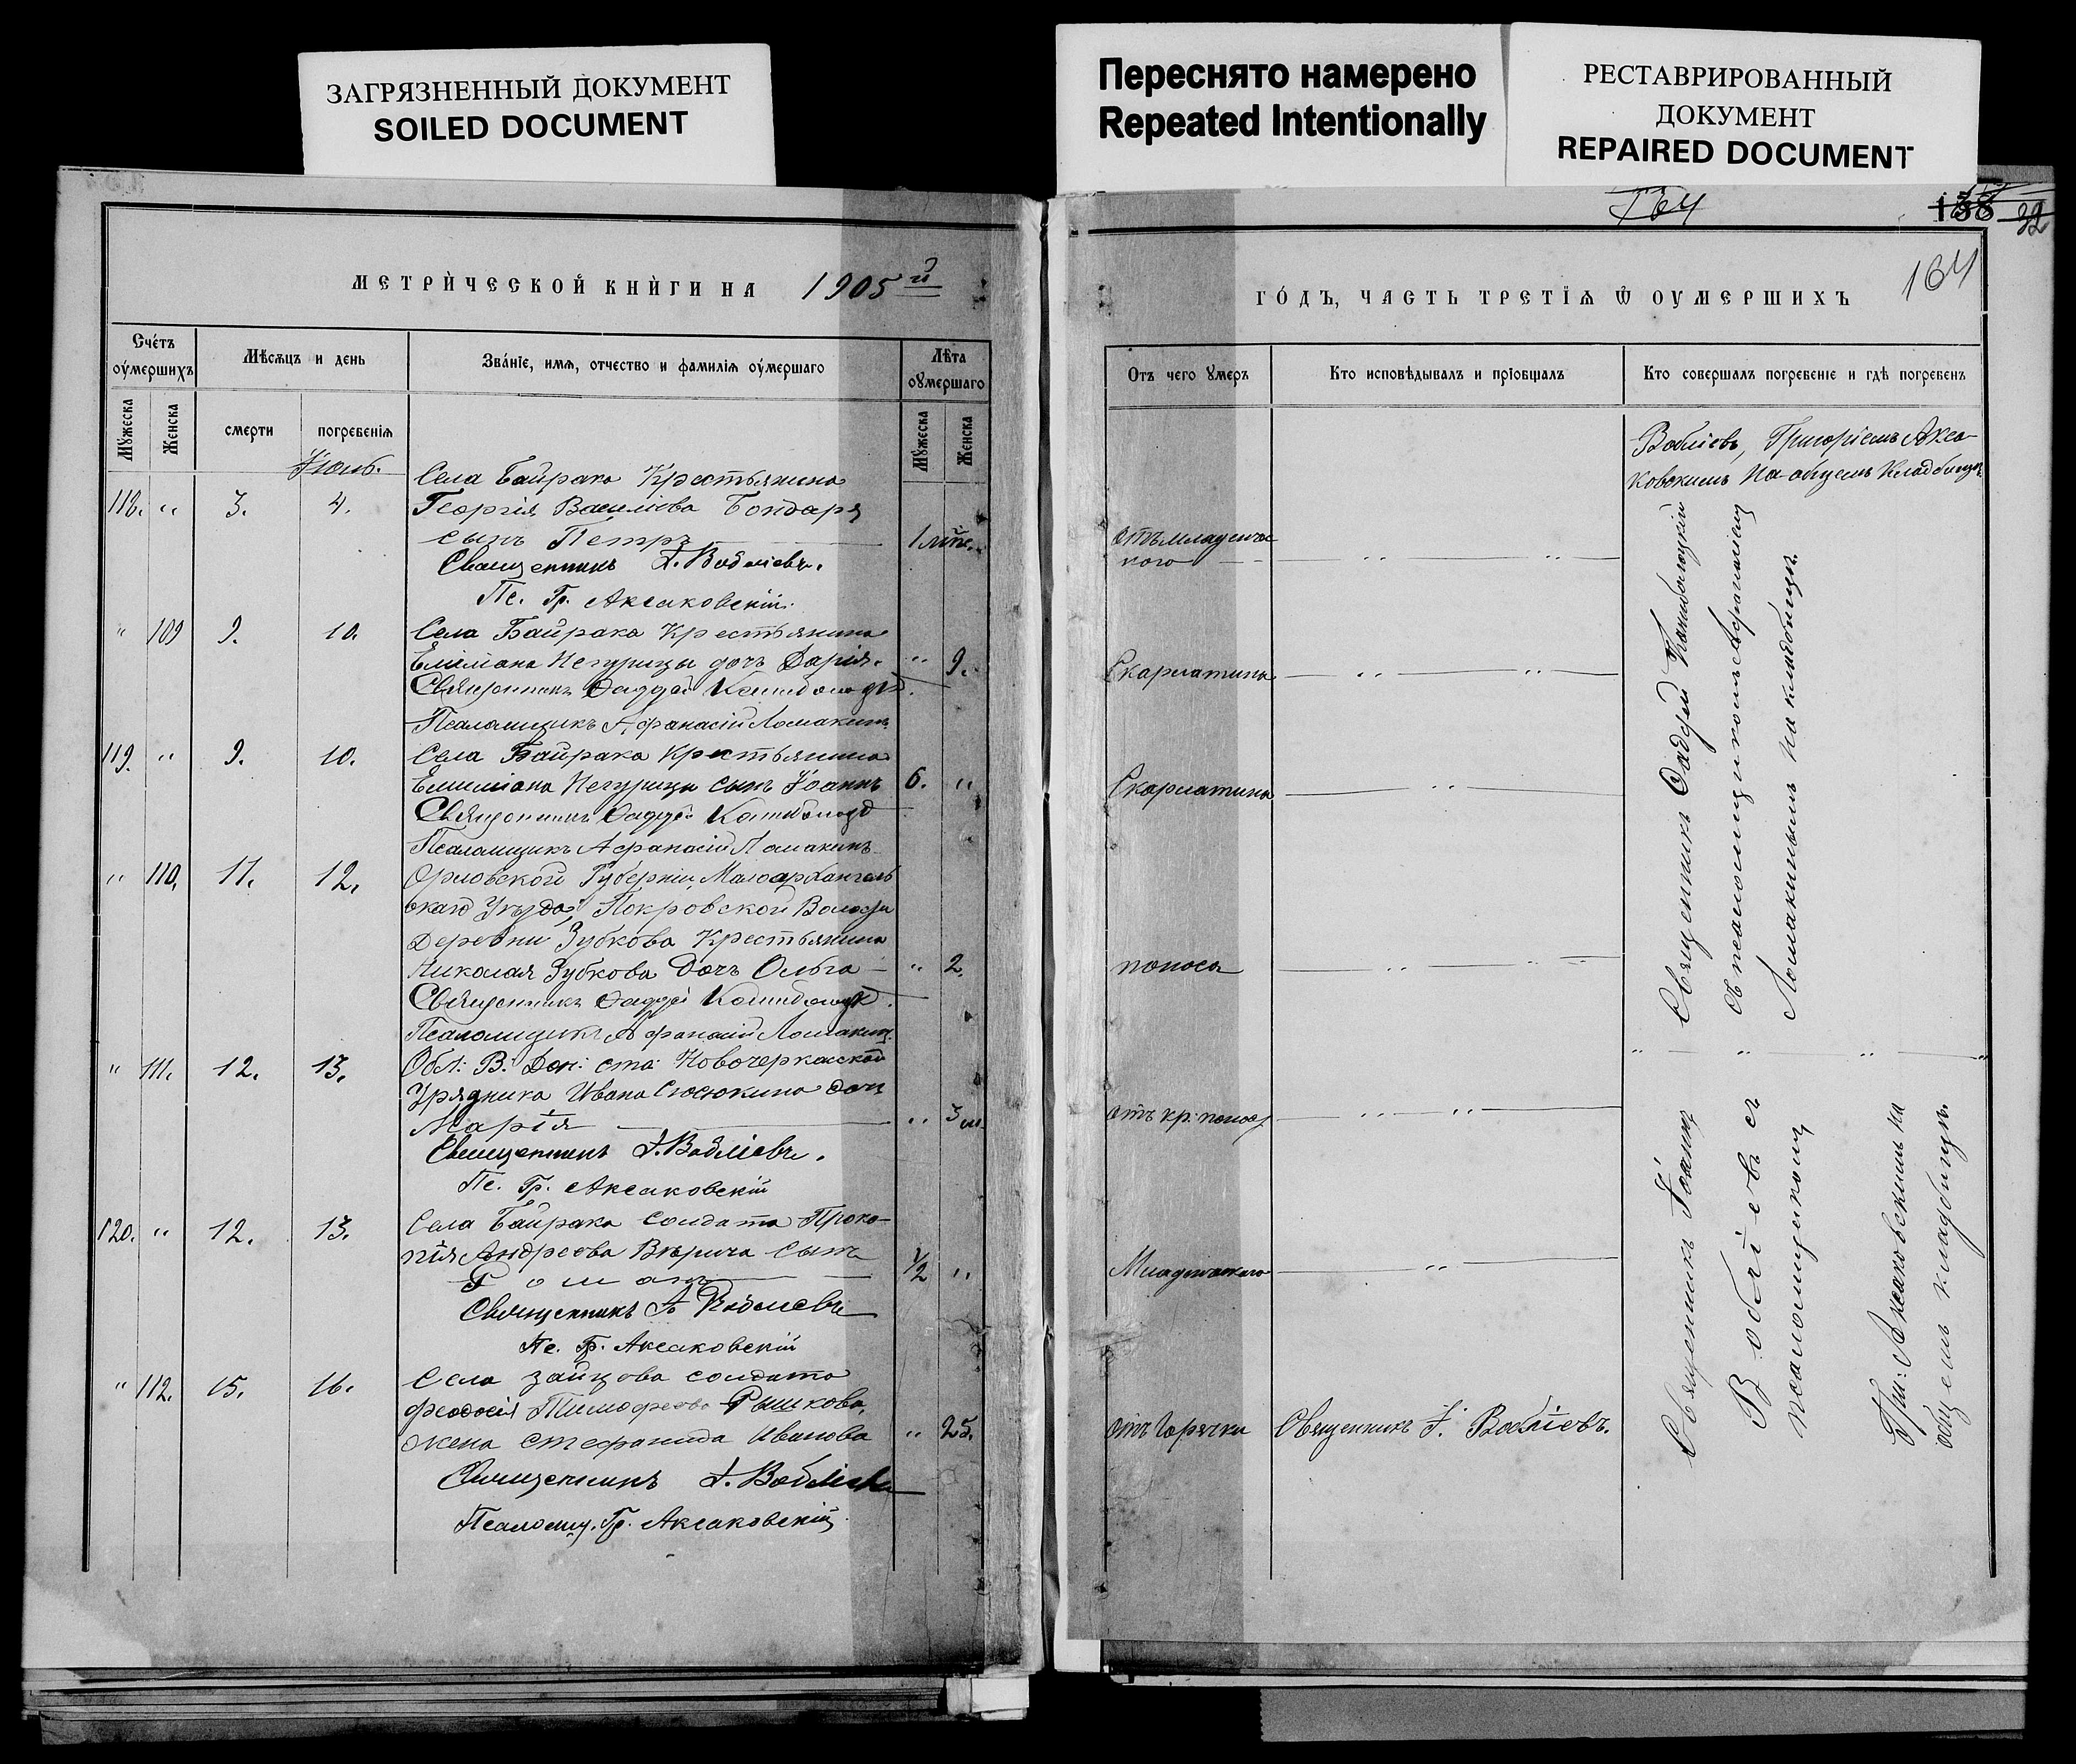 ЗАГРЯЗНЕННЫЙ ДОКУМЕНТ
SOILED DOCUMENT
Переснято намерено
Repeated Intentionally
РЕСТАВРИРОВАННЫЙ
ДОКУМЕНТ
REPAIRED DOCUMENT
МЕТРИЧЕСКОЙ КНИГИ НА 1905 й
Счетъ оумершихъ
Мѣсяцъ и день
Званіе, имя, отчество и фамилія оумершаго
Лѣта оумершаго
Мужеска
Женска
смерти
погребенія
Мужеска
Женска
Іюнь.
Села Байрака Крестьянина
118. " 3. 4. Георгія Василіева Бондаря
сынъ Петръ 1
Священникъ І. Вобліевъ.
Пс. Гр. Аксаковскій.
" 109 9. 10. Села Байрака Крестьянина
Емиліана Негурицы дочь Дарія. " 9.
Священникъ Фаддей
Псаломщикъ Афанасій Ломакинъ
119. " 9. 10. Села Байрака Крестьянина
Емиліана Негурицы сынъ Іоаннъ 6. "
Священникъ Фаддей
Псаломщикъ Афанасій Ломакинъ
" 110. 11. 12. Орловской Губерніи, Малоархангель
скаго Уѣзда, Покровской Волости
Деревни Зубкова Крестьянина
Николая Зубкова Дочь Ольга " 2.
Священникъ Фаддей
Псаломщикъ Афанасій Ломакинъ
" 111. 12. 13. Обл: В. Дон: ста: Новочеркаской
Урядника Ивана Сюсюкина дочь
Марія " 3 м.
Священникъ І. Вобліевъ.
Пс. Гр. Аксаковскій
120. " 12. 13. Села Байрака солдата Проко-
пія Андреева Вѣрича сынъ
Романъ 1/2 "
Священникъ І. Вобліевъ
Пс. Гр. Аксаковскій
" 112. 15. 16. Села Зайцова солдата
Феодосія Тимофеева Рышкова,
жена Стефанида Иванова " 25.
Священникъ І. Вобліевъ
Псаломщ. Гр. Аксаковскій
164
138 32
164
ГОДЪ, ЧАСТЬ ТРЕТІЯ Ѿ ОУМЕРШИХЪ
Отъ чего умеръ
Кто исповѣдывалъ и пріобщалъ
Кто совершалъ погребеніе и гдѣ погребенъ
Вобліевъ, Григоріемъ Акса-
ковскимъ На общемъ Кладбищѣ
отъ младенчес
кого " "
Скарлатина " "
Скарлатина "
поноса " "
отъ кр: поноса " "
Младенческаго "
отъ Горячки Священникъ І. Вобліевъ.
Священникъ Фаддей
съ псаломщикомъ Афанасіемъ
Ломакинымъ на кладбищѣ.
" " " "
Священникъ Іоаннъ
Вобліевъ съ
псаломщикомъ
Гри: Аксаковскимъ На
общемъ кладбищѣ.